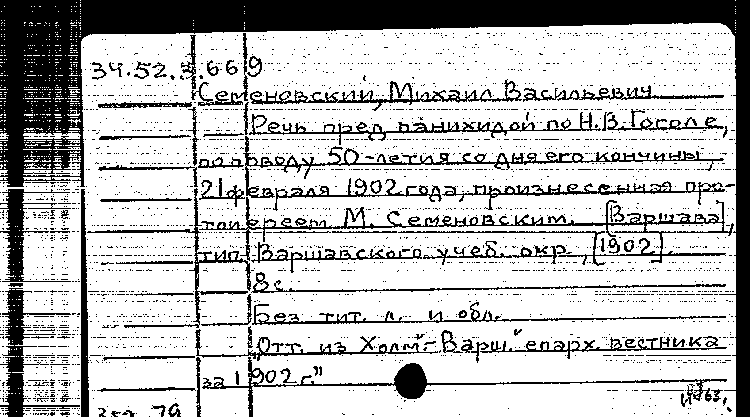 34.52.3.669
Семеновский, Михаил Васильевич
Речь пред панихидой по Н.В.Гоголе,
по поводу 50-летия со дня его кончины,
21 февраля 1902 года, произнесенная про-
тоиереем М. Семеновским. [Варшава],
тип. Варшавского учеб. окр., [1902].
8с.
Без тит. л. и обл.
"Отт. из Холм"-Варш." епарх. вестника
за 1902 г."